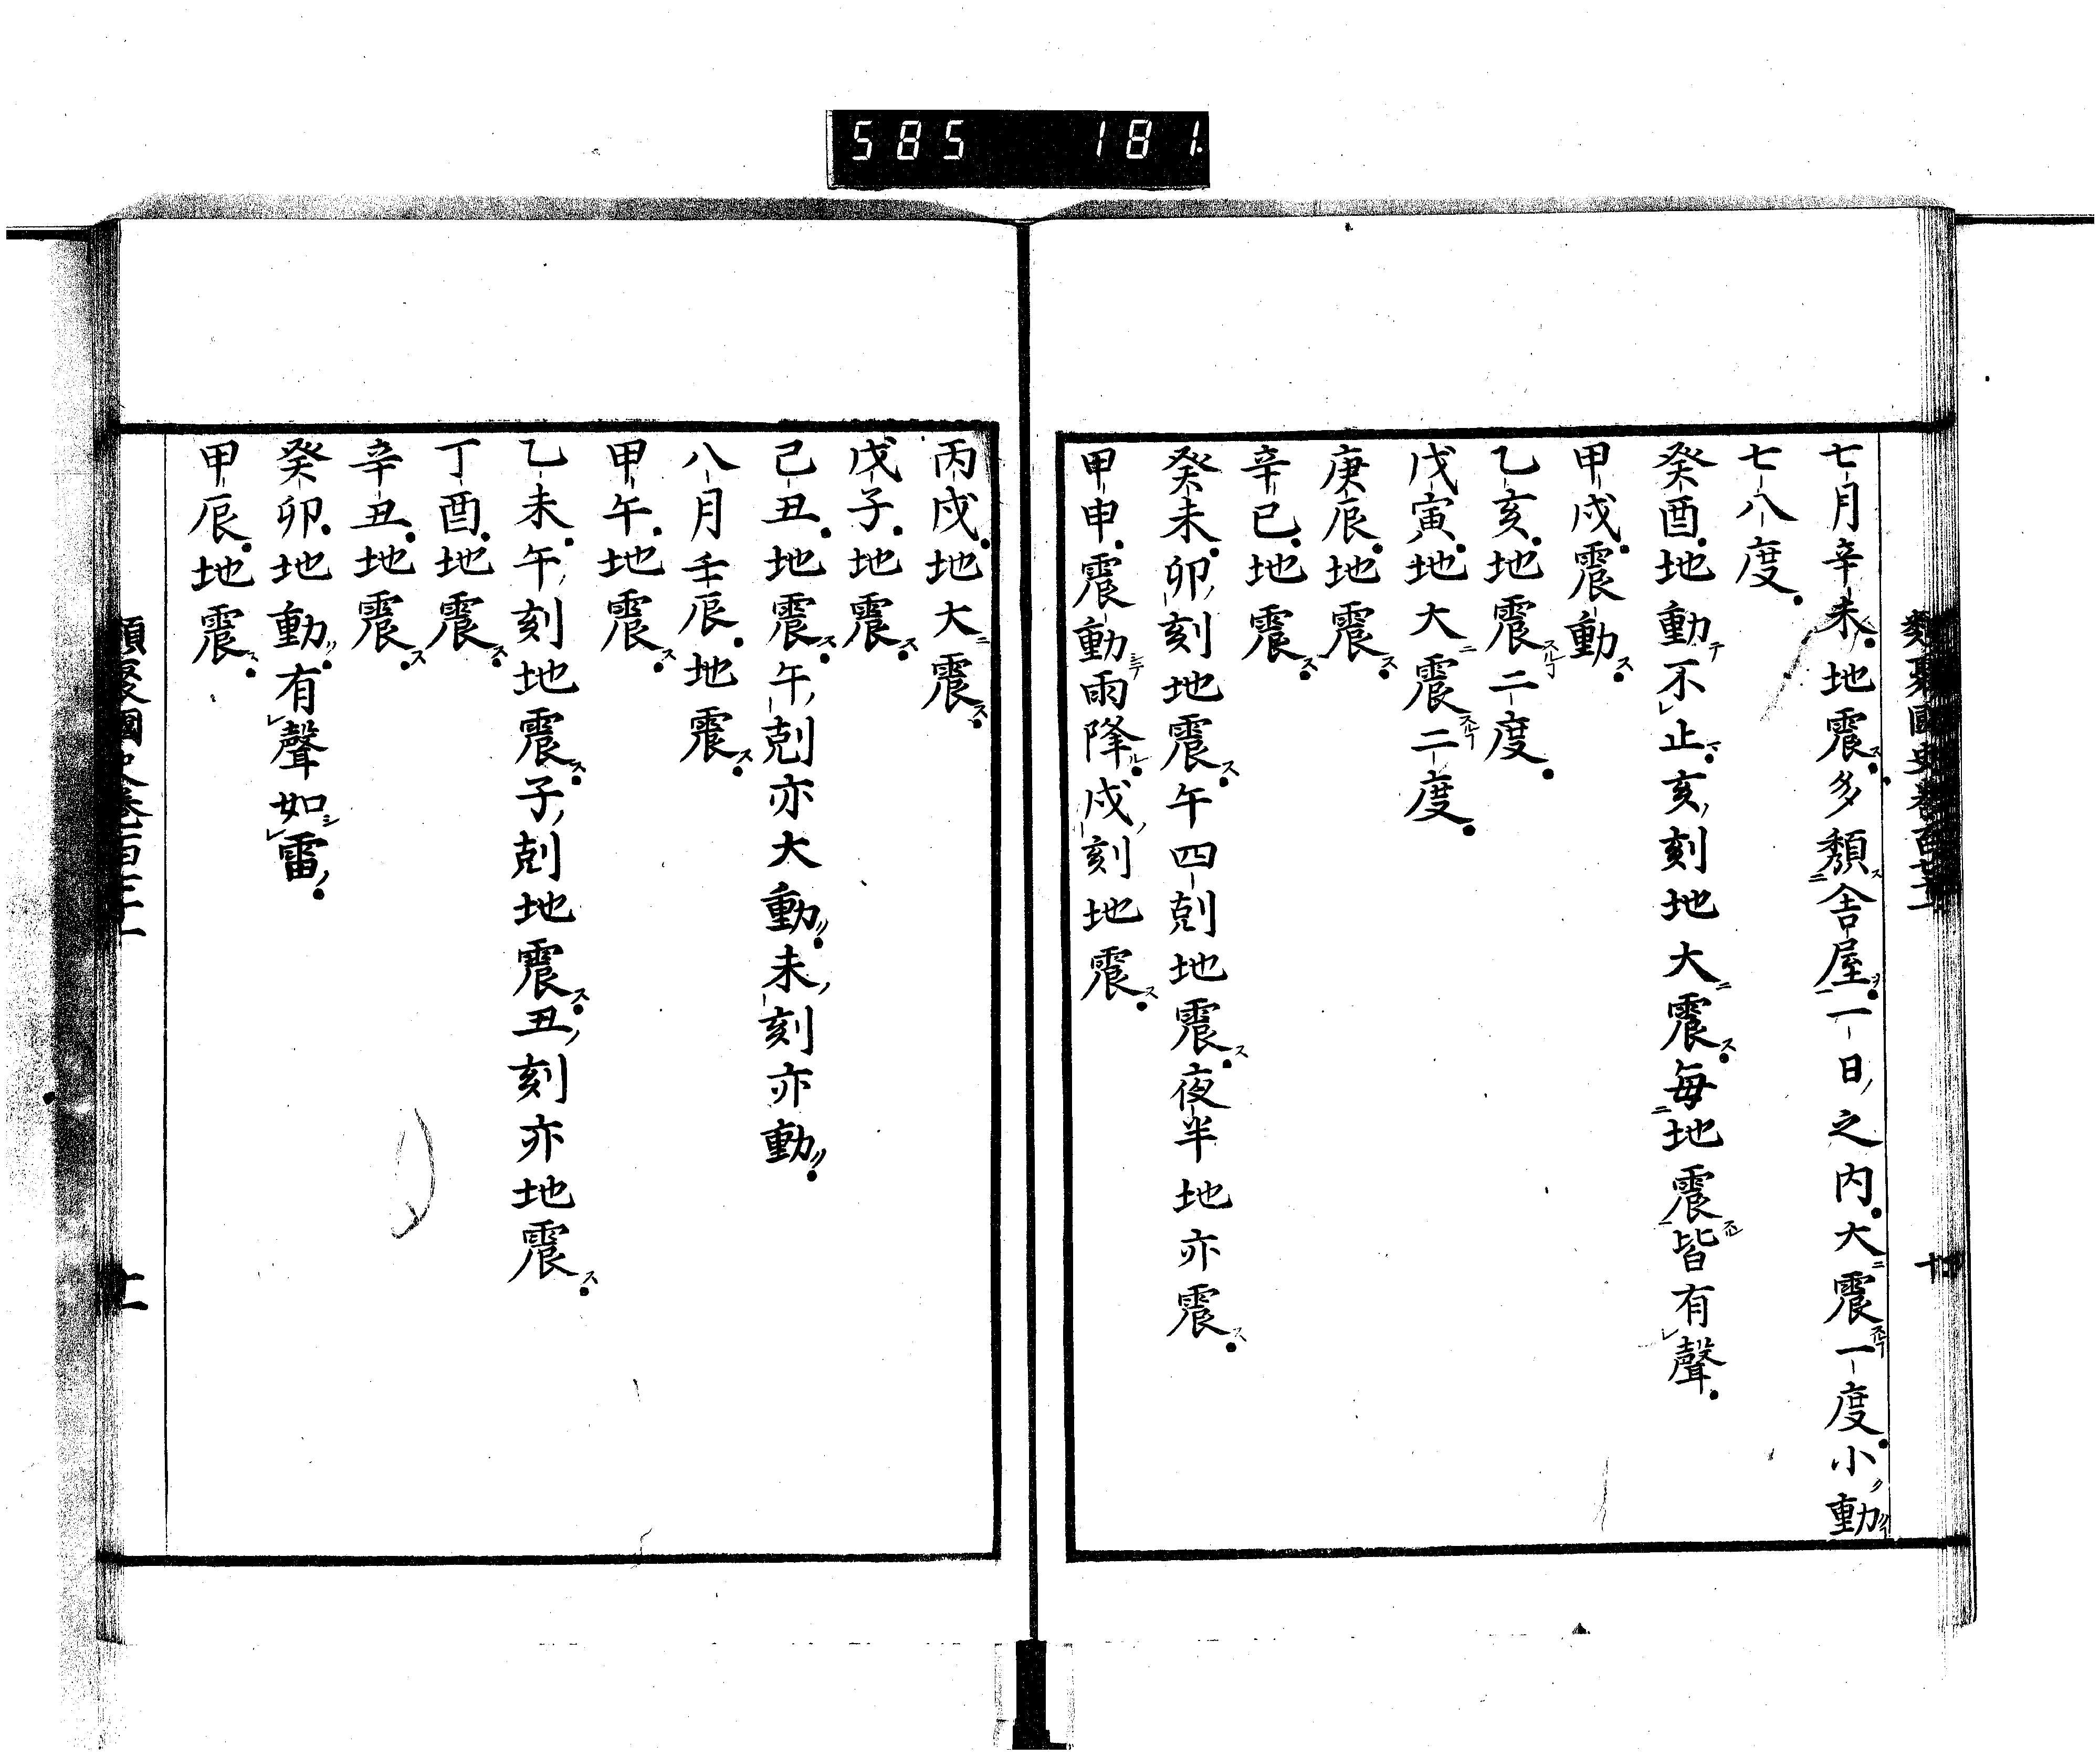 585 181
類聚國史卷百七十一 十
七月辛未地震多頽舎屋一日之内大震一度小動
七八度
癸酉地動不止亥刻地大震毎地震皆有聲
甲戌震動
乙亥地震二度
戊寅地大震二度
庚辰地震
辛巳地震
癸未卯刻地震午四剋地震夜半地亦震
甲申震動雨降戌刻地震
丙戌地大震
戊子地震
己丑地震午剋亦大動未刻亦動
八月壬辰地震
甲午地震
乙未午刻地震子剋地震丑刻亦地震
丁酉地震
辛丑地震
癸卯地動有聲如雷
甲辰地震